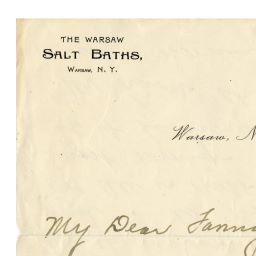 THE WARSAW
SALT BATHS,
WARSAW, N. Y.
Warsaw, N
My Dear Fanny